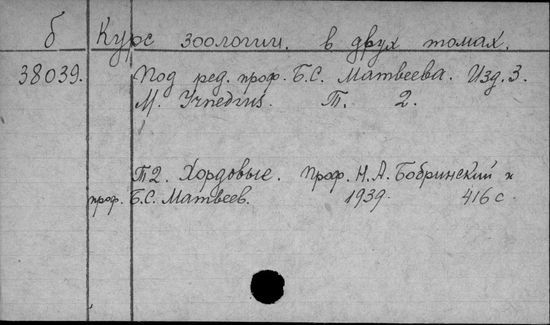 б Курс зоологии. в двух томах.
38039. Под ред. проф. Б.С. Матвеева. Изд. 3.
М. Т. 2.
Т2. Хордовые. Проф. Н.А. Бобринский и
проф. Б.С. Матвеев. 1939. 416 с.